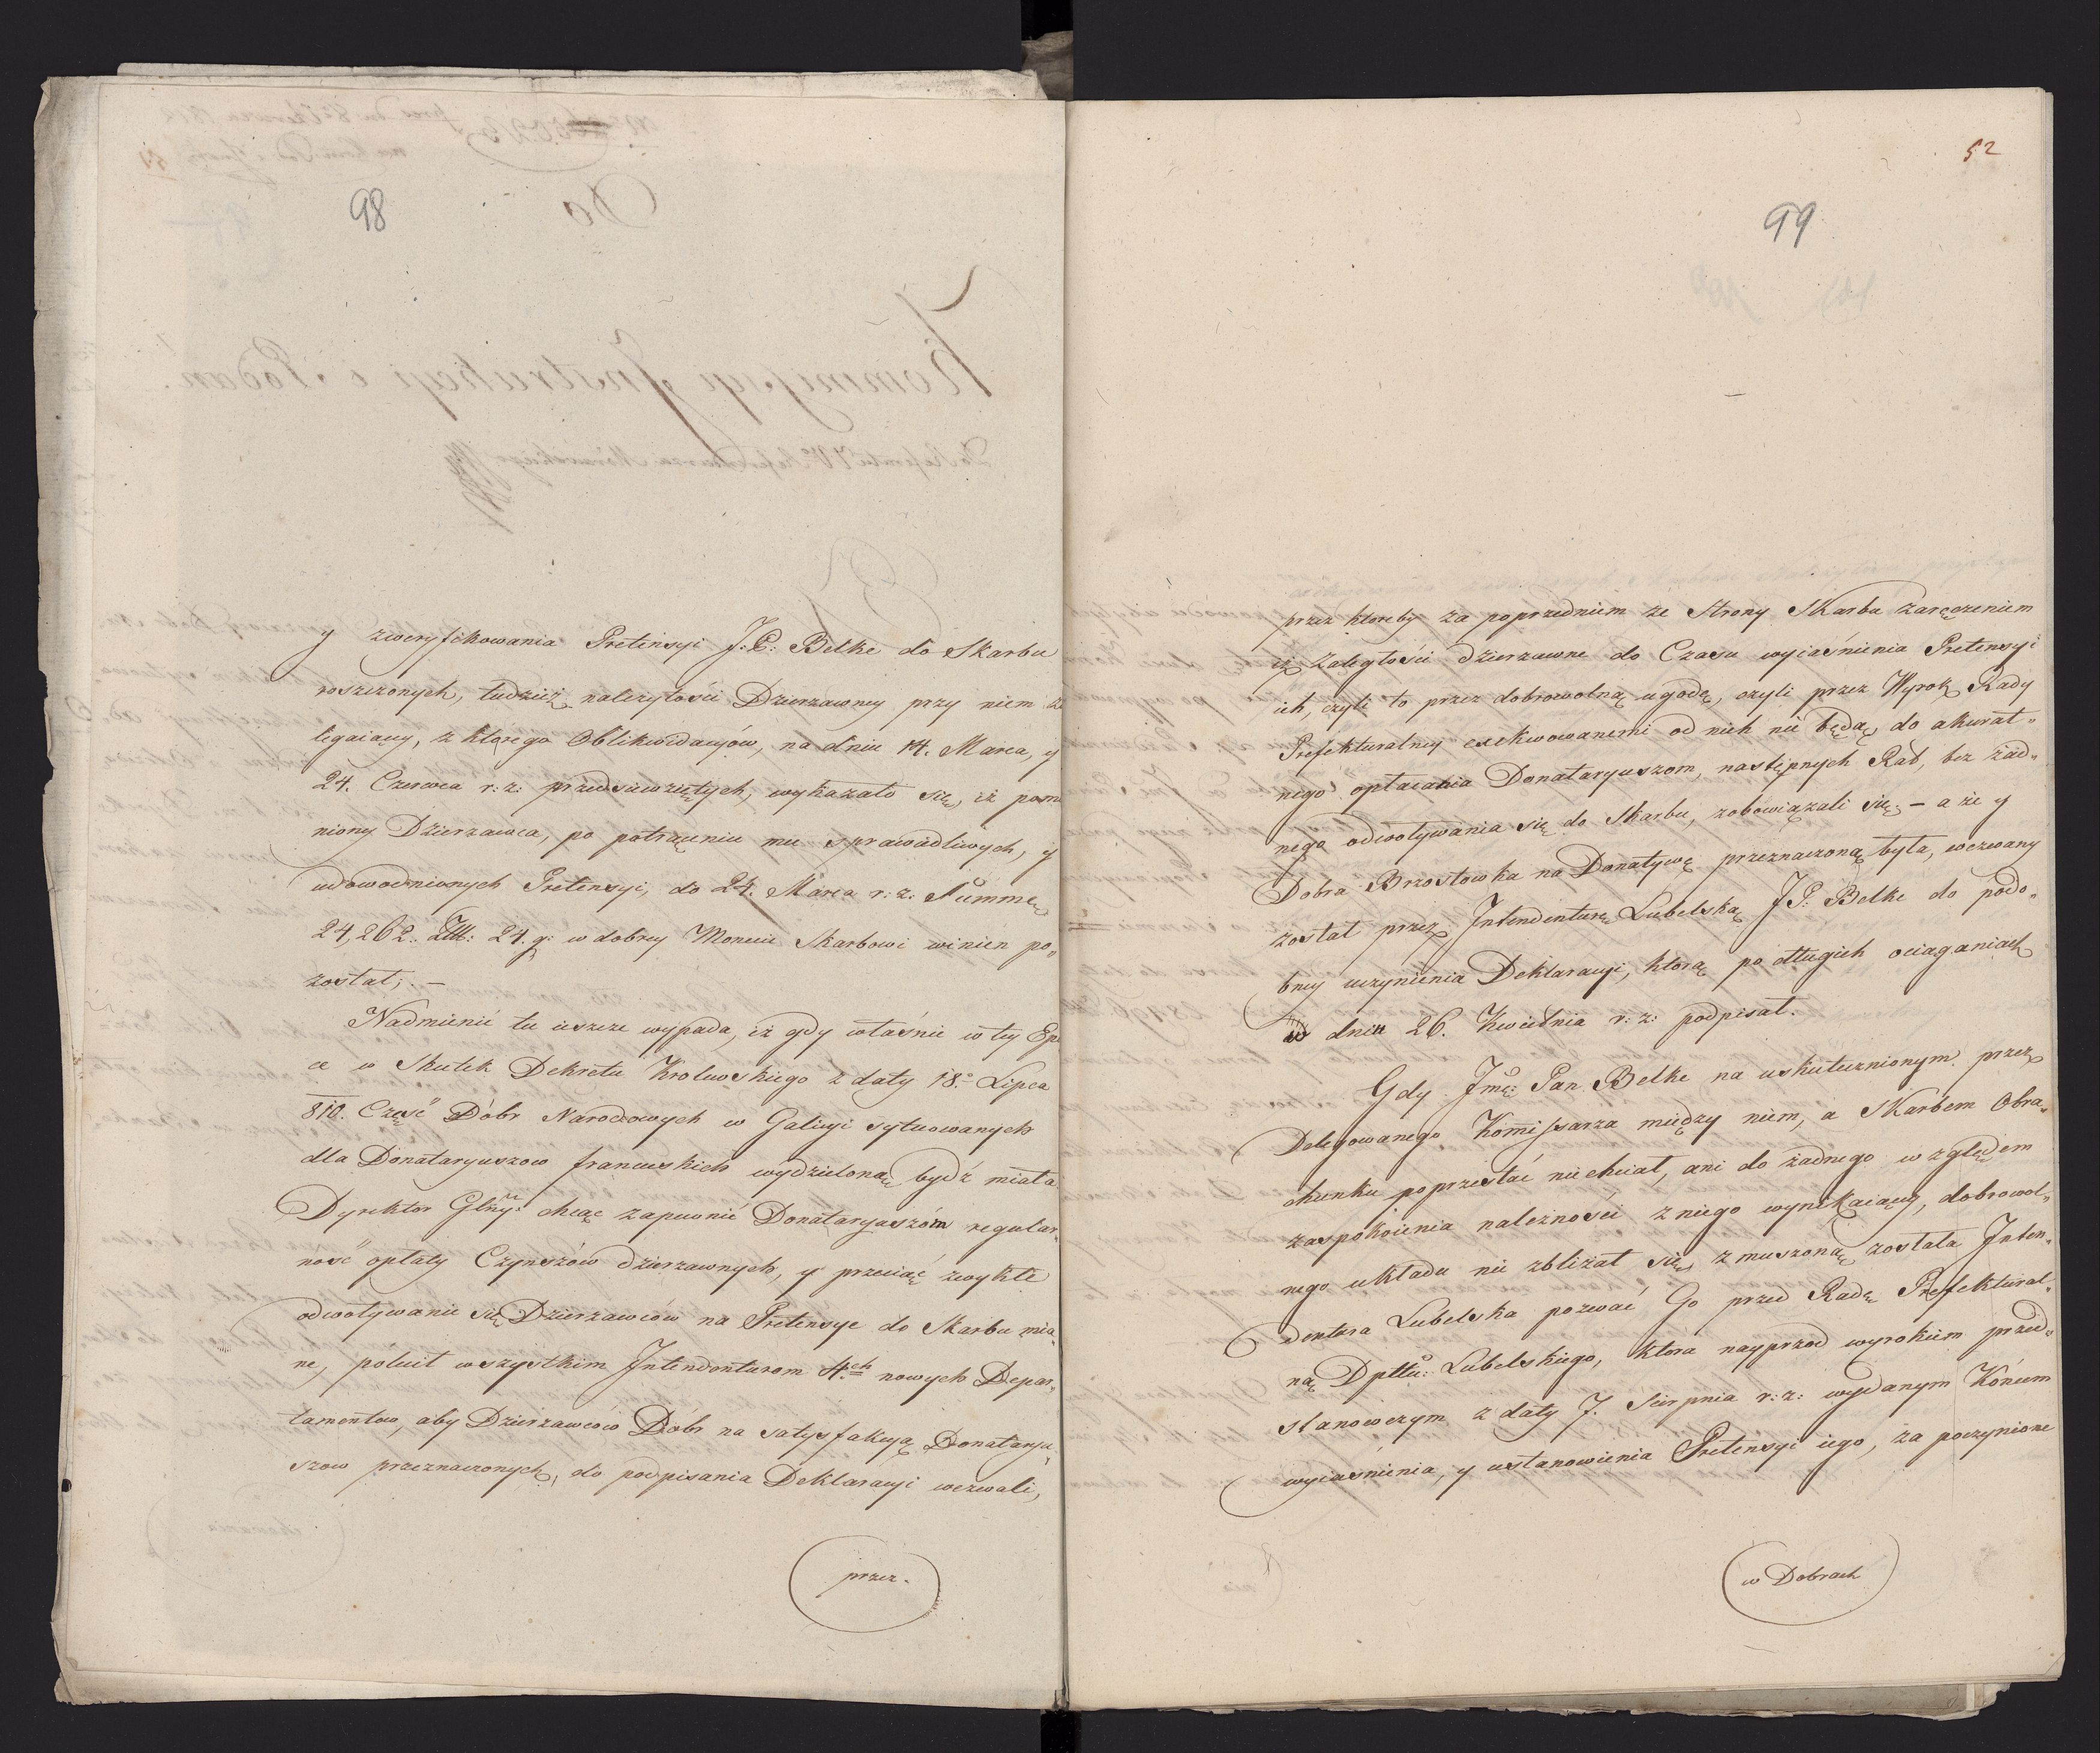 98
y zweryfikowania Pretensyi J: P: Belke do Skarbu
roszczonych, tudzież należytości Dzierzawney przy niem za
legaiącey, z którego Oblikwidacyów, na dniu 14. Marca, y
24. Czerwca r: z: przedsiewziętych, wykazało się, iż pom
niony Dzierzawca, po potrąceniu mu sprawiedliwych, y
udowodnionych Pretensyi, do 24. Marca r: z: Summę
24,262. Złł: 24. g: w dobrey Monecie Skarbowi winien po„
został; . —
Nadmienić tu ieszcze wypada, iż gdy właśnie w tey Epo
ce w Skutek Dekretu Krolewskiego z daty 18.º Lipca
810. Część Dóbr Narodowych w Galicyi sytuowanych
dla Donataryuszow francuskich wydzieloną bydź miała
Dyrektor Glny: chcąc zapewnić Donataryuszóm regular„
ność opłaty Czynszów dzierzawnych, y przeciąć zwykłe
odwoływanie się Dzierzawców na Pretensye do Skarbu mia„
ne, polecił wszystkim Intendenturom 4.ch nowych Depar„
tamentow, aby Dzierzawców Dóbr na satysfakcyą Donataryu„
szow przeznaczonych, do podpisania Deklaracyi wezwali,
przez.
52
99
przez ktoreby za poprzedniem ze Strony Skarbu zaręczeniem
iż Zaległości dzierzawne do Czasu wyiaśnienia Pretensyi
ich, czyli to przez dobrowolną ugodę, czyli przez Wyrok Rady
Prefekturalney exekwowanemi od nich nie będą, do akurat„
nego opłacania Donataryuszom, następnych Rat, bez żad„
nego odwoływania się do Skarbu, zobowiązali się; — a że y
Dobra Brzostowka na Donatywę przeznaczoną była, wezwany
został przez Intendenturę Lubelską J P. Belke do podo„
bney uczynienia Deklaracyi, którą po długich ociąganiach
w dniu 26. Kwietnia r: z: podpisał.
Gdy Jmć: Pan Belke na uskutecznionym przez
Delegowanego Kommissarza między niem, a Skarbem Obra„
chunku poprzestać niechciał, ani do żadnego względem
zaspokoienia należności z niego wynikaiącey, dobrowol„
nego układu nie zbliżał się, zmuszoną została Inten„
dentura Lubelska pozwać Go przed Radę Prefektural„
ną Dpttu: Lubelskiego, ktora nayprzod wyrokiem przed„
stanowczym z daty 7. Sierpnia r: z: wydanym Końcem
wyiaśnienia, y ustanowienia Pretensyi iego, za poczynione
w Dobrach